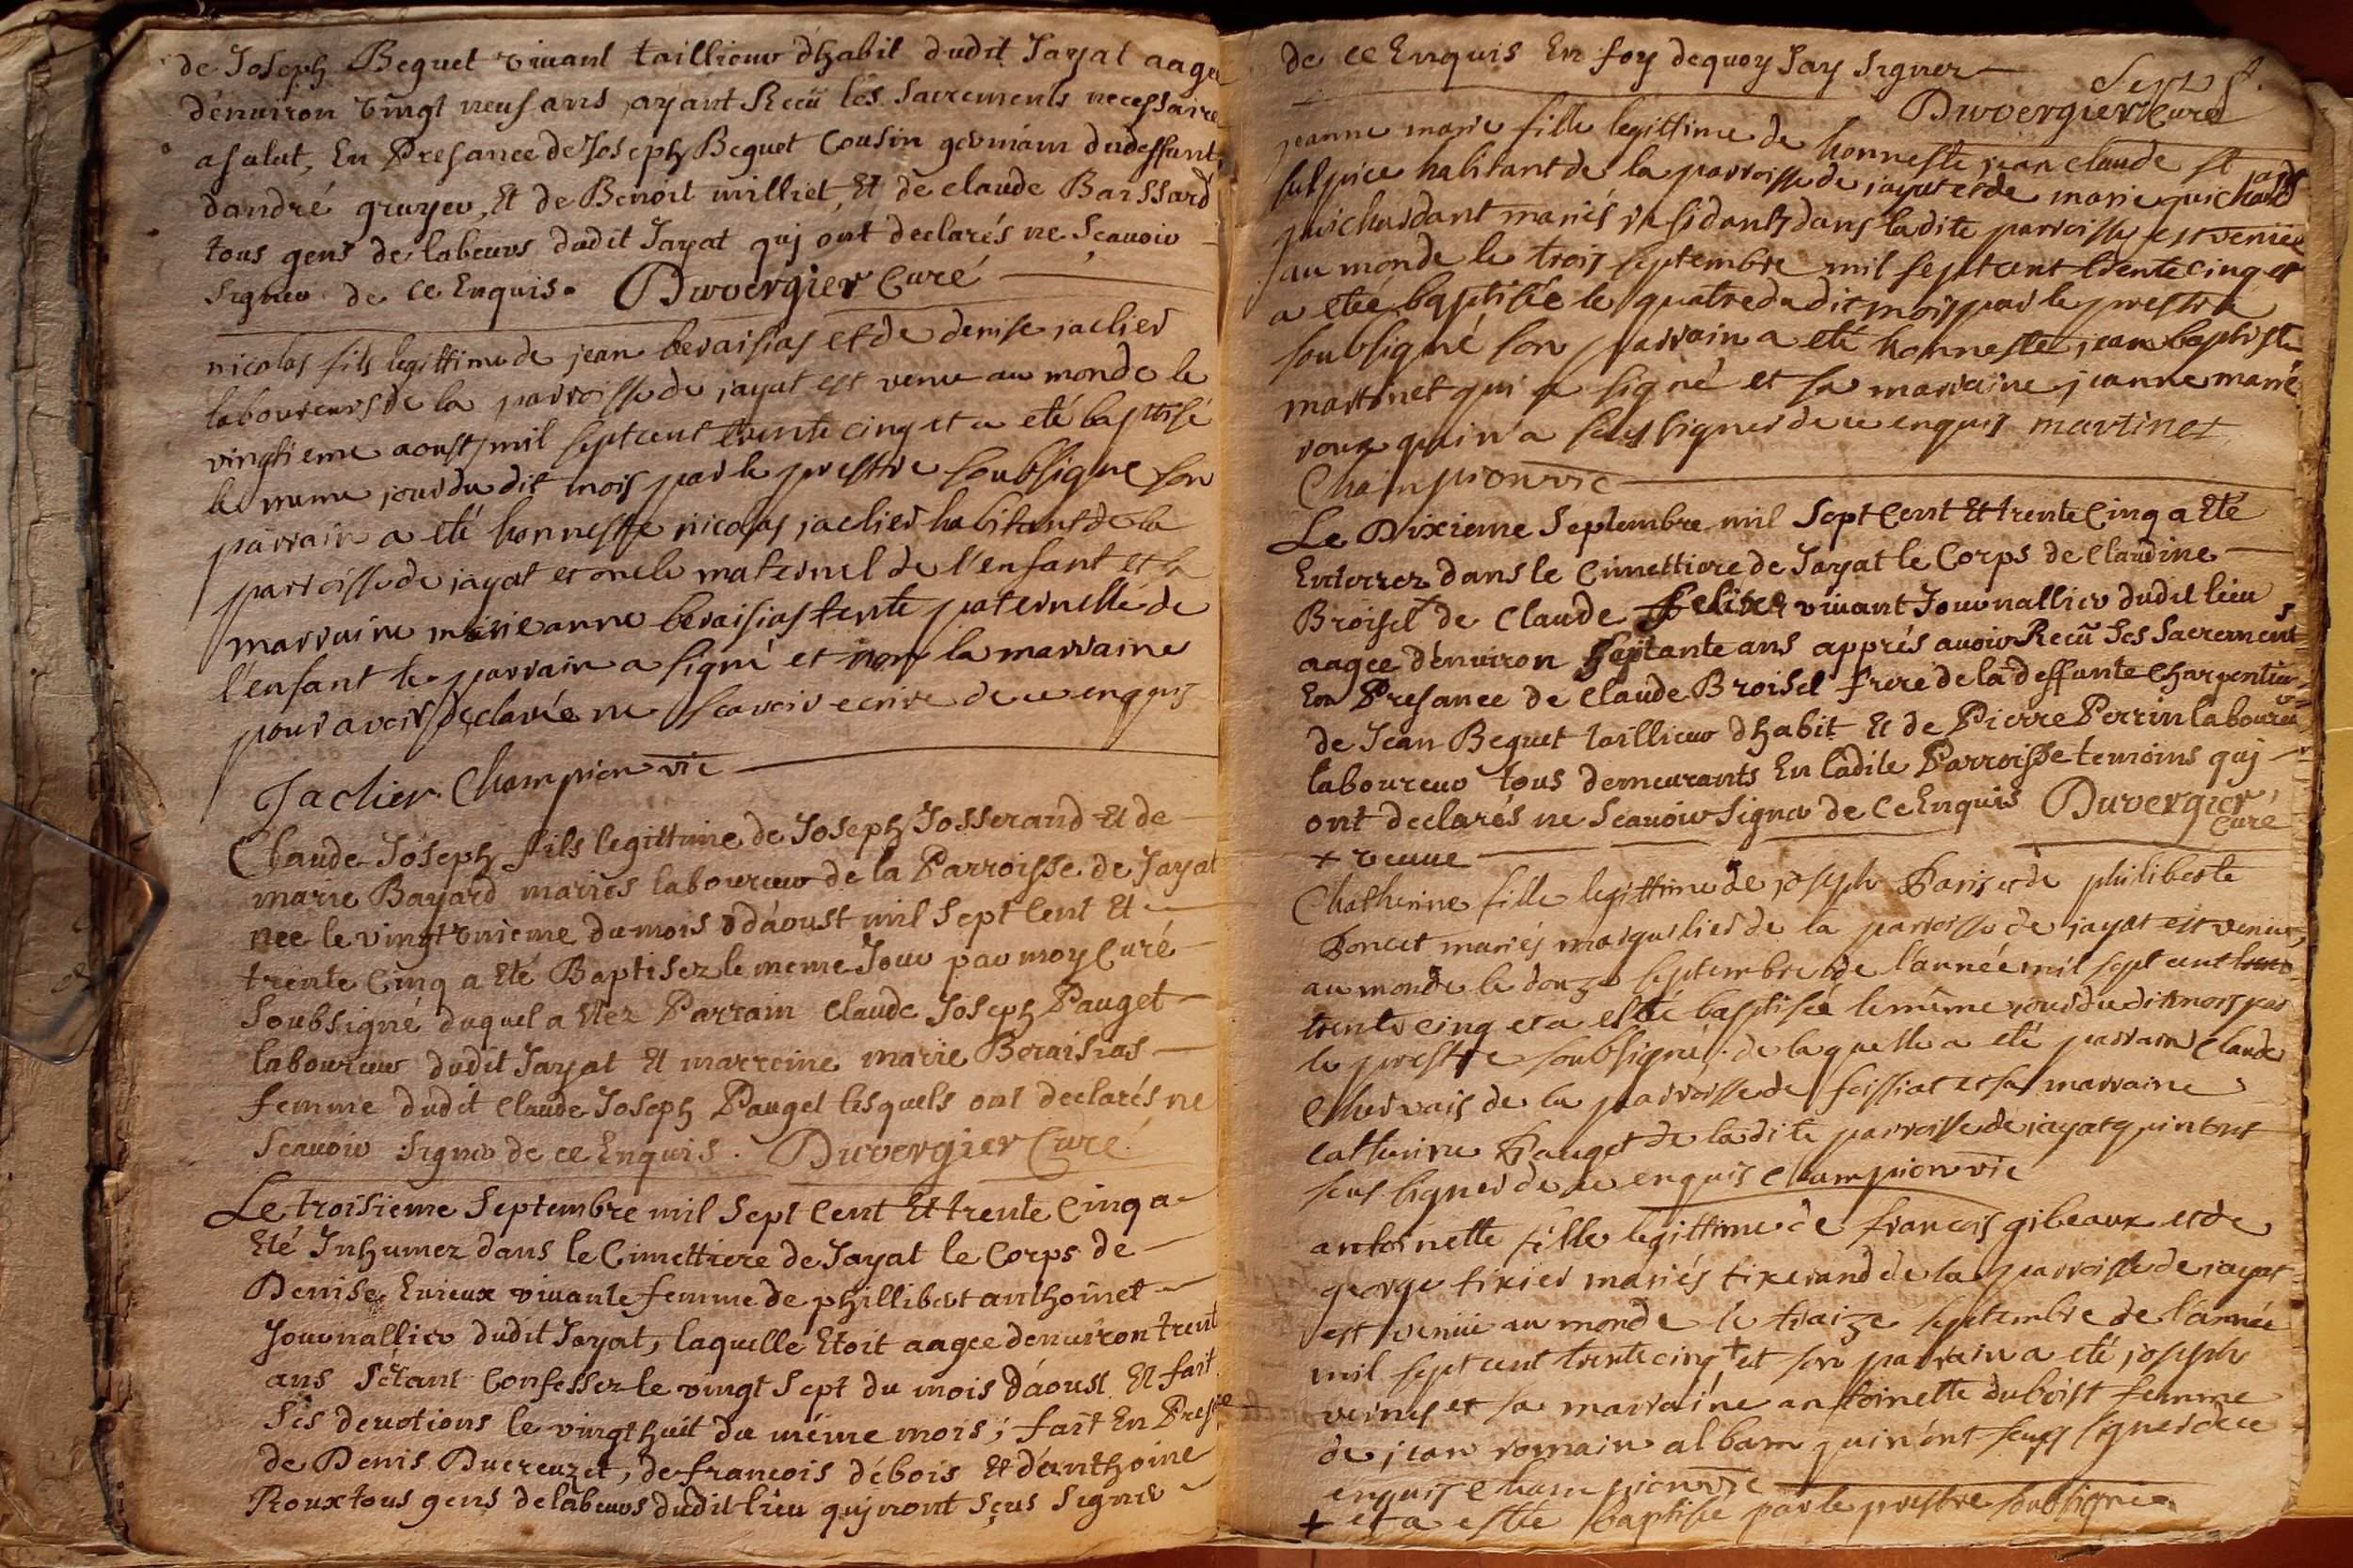 de Joseph Beguet vivant taillieur dhabit dudit Jayat aagé
dénviron vingt neuf ans, ayant Recü lés Sacrements necessaire
asalut, En Presance de Joseph Beguet Cousin germain dudeffunt,
dandré gruyer, Et de Benoit milliet, Et de claude Baissard
tous gens de labeurs dudit Jayat quj ont declarés ne Sçauoir
Signer de ce Enquis. Duvergier Curé
nicolas fils legittime de jean beraisias et de denise jaclier
laboureurs de la parroisse de jayat est venu au monde le
vingtieme aoust mil sept cent trente cinq et a eté baptisé
le meme jour du dit mois par le prestre soubsigne son
parrain a eté honneste nicolas jaclier habitant de la
parroisse de jayat et oncle maternel de l'enfant et sa
marraine marieanne beraisias tente paternelle de
l'enfant le parrain a signé et non la marraine
pour avoir declarée ne scavoir ecrire de ce enquis
Jaclier Champion vic
Claude Joseph fils legittime de Joseph Josserand Et de
marie Bayard mariés laboureur de la Parroisse de Jayat
nee le vingt vnieme du mois daoust mil Sept Cent Et
trente Cinq a Eté Baptisez le meme Jour par moy Curé
Soubsigné duquel a Etez Parrain Claude Joseph Pauget
laboureur dudit Jayat Et marreine marie Beraisias
femme dudit Claude Joseph Pauget lesquels ont declarés ne
Scauoir Signer de ce Enquis. Duvergier Curé.
Le troisieme Septembre mil Sept Cent Et trente Cinq a
Eté Inhumez dans le Cimettiere de Jayat le Corps de
Denise Enieux viuante femme de phillibert anthoinet
Journallier dudit Jayat, laquelle Etoit aagee denuiron trent
ans s'étant Confessez le vingt Sept du mois daoust Et fait
Sés deuotions le vingt huit du méme mois; fait En Presce
de Denis Ducreuzet, de francois débois Et danthoine
Roux tous gens de labeurs dudit lieu quj nont Sçus Signer
de ce Enquis En foy dequoy Jay Signer
Duvergier Curé
jeanne marie fille legittime de honneste jean claude st
sulpice habitant de la parroisse de jayat et de marie guichard
guichardant mariés residants dans ladite parroisse est venüe
au monde le trois septembre mil sept cent trente cinq et
a eteé baptisée le quatre du dit mois par le prestre
soubsigné son parrain a eté honneste jean baptiste
martinet qui a signé et sa marraine jeanne marie
roux qui n'a sceu signer de ce enquis martinet
Champion vic
Le Dixieme Septembre mil Sept Cent Et trente Cinq a Eté
Enterrez dans le Cimettiere de Jayat le Corps de Claudine
Broisel + de Claude Felix viuant Journallier dudit lieu
aagee dénuiron Septante ans apprés auoir Recü Ses Sacrements
En Presance de Claude Broisel frere de la deffunte Charpentier
de Jean Beguet taillieur dhabit Et de Pierre Perrin laboureur
laboureur tous demeurants En ladite Parroisse temoins quj
ont declarés ne Scauoir Signer de Ce Enquis Duvergier Curé
+ veuue
Chatherine fille legittime de joseph Paris et de philiberte
Poncet mariés marguilier de la parroisse de jayat est veniue
au monde le douze septembre de l'année mil sept cent
trente cinq et a esté baptisée le même jour du dit mois par
le prestre soubsigné. de laquelle a eté parrain Claude
Chervais de la parroisse de foissiat et sa marraine
catherine Pauget de la dite parroisse de jayat qui n'ont
sceus signer de ce enquis Champion vic
antoinette fille legittime de francois gibeaux et de
george tixier mariés tixerand de la parroisse de jayat
est veniue au monde le traize septembre de l'année
mil sept cent trente cinq + et son parrain a eté joseph
vernes et sa marraine antoinette duboist femme
de jean romain alban qui n'ont sceus signer de ce
enquis Champion vic
+ et a estée baptisée par le prestre soubsigné